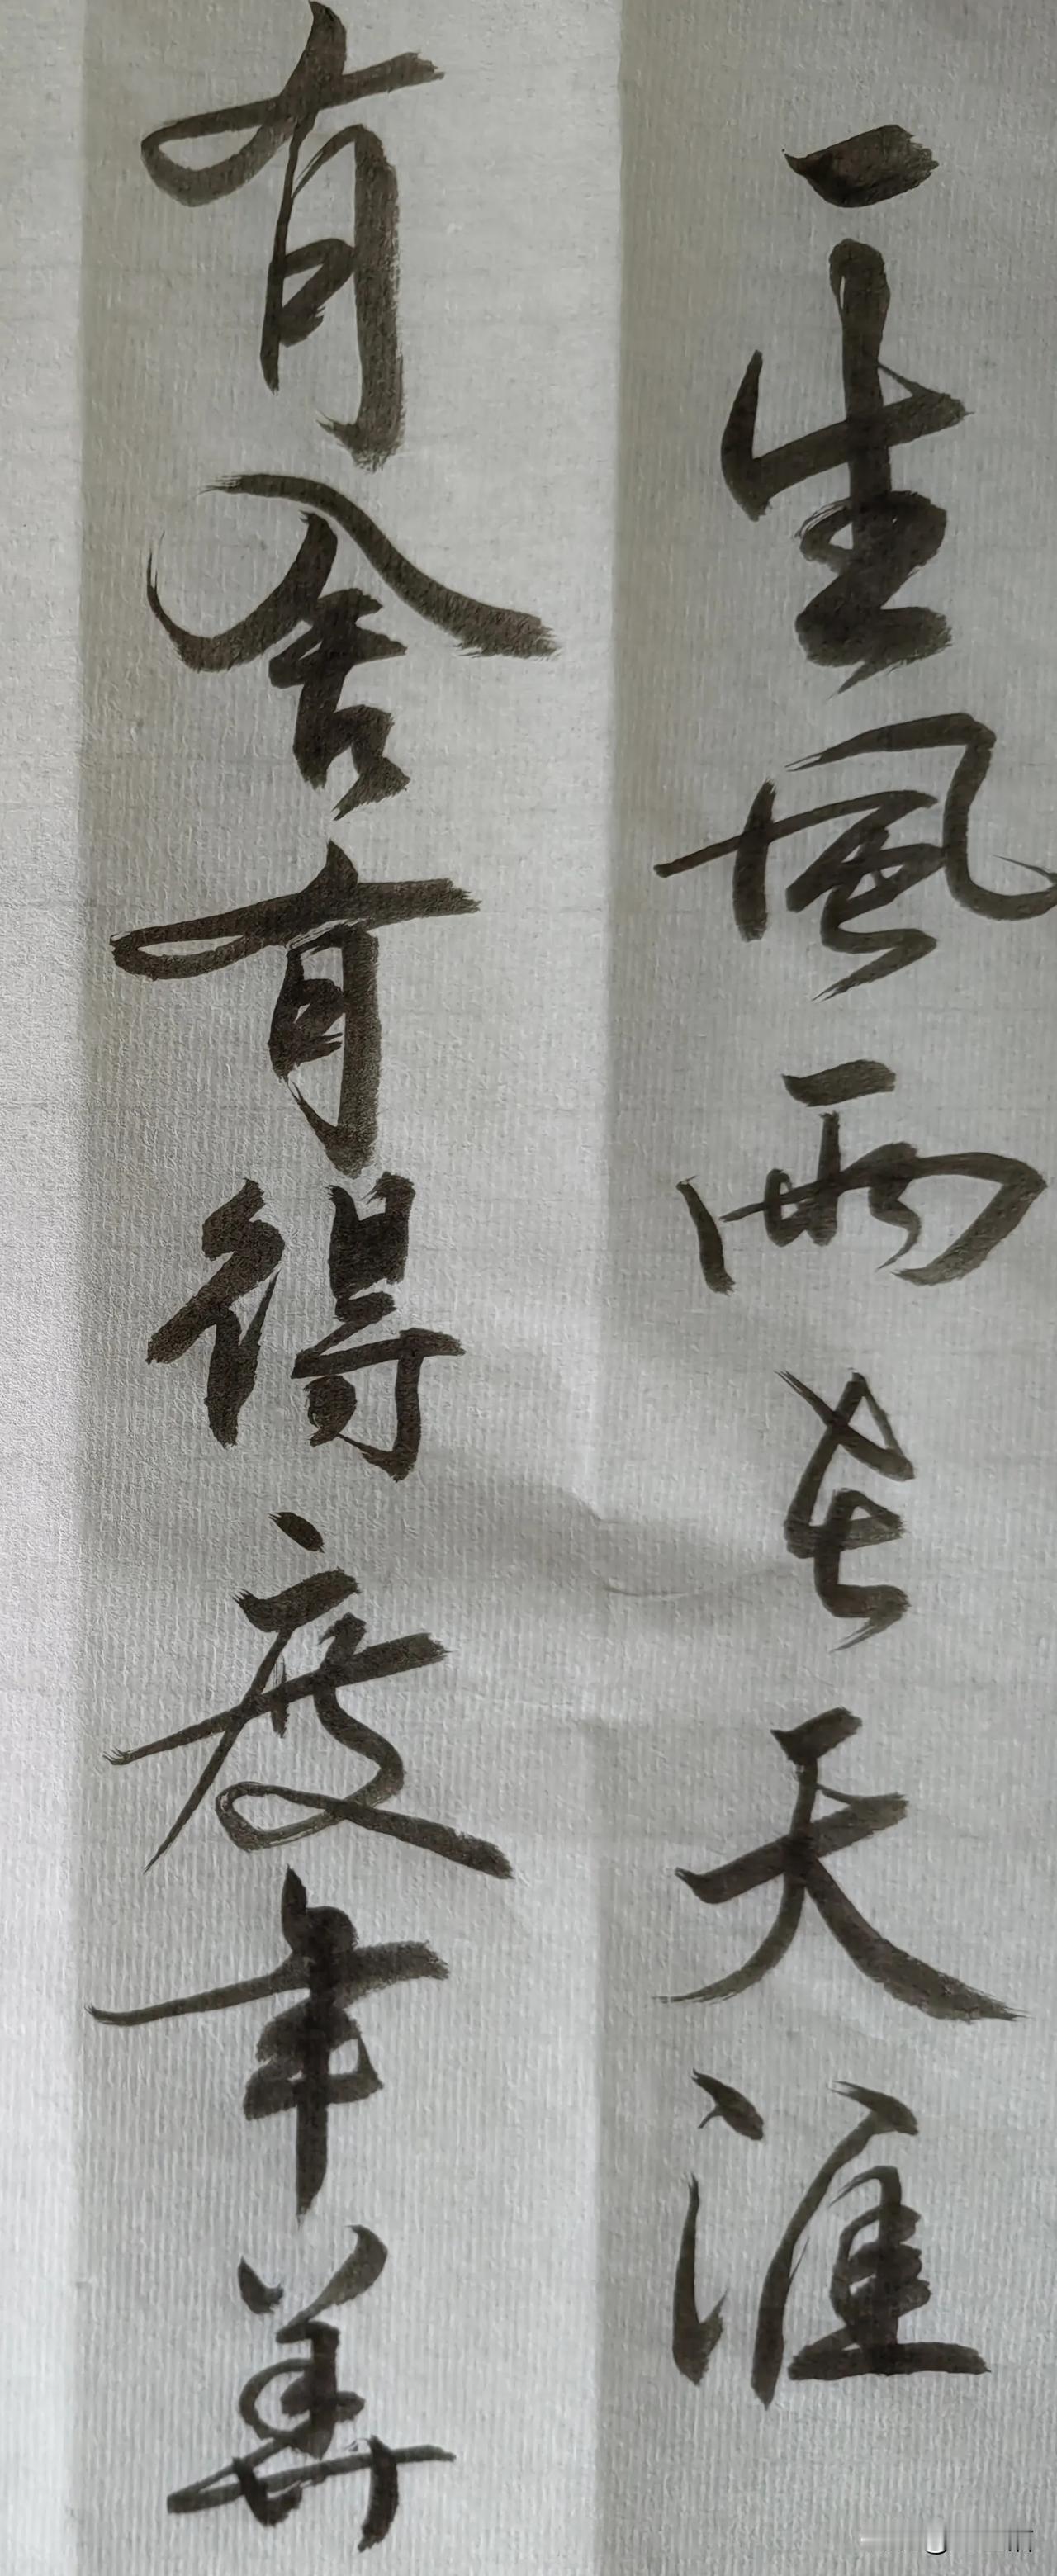 一生風雨在天涯
有舍有得度年華